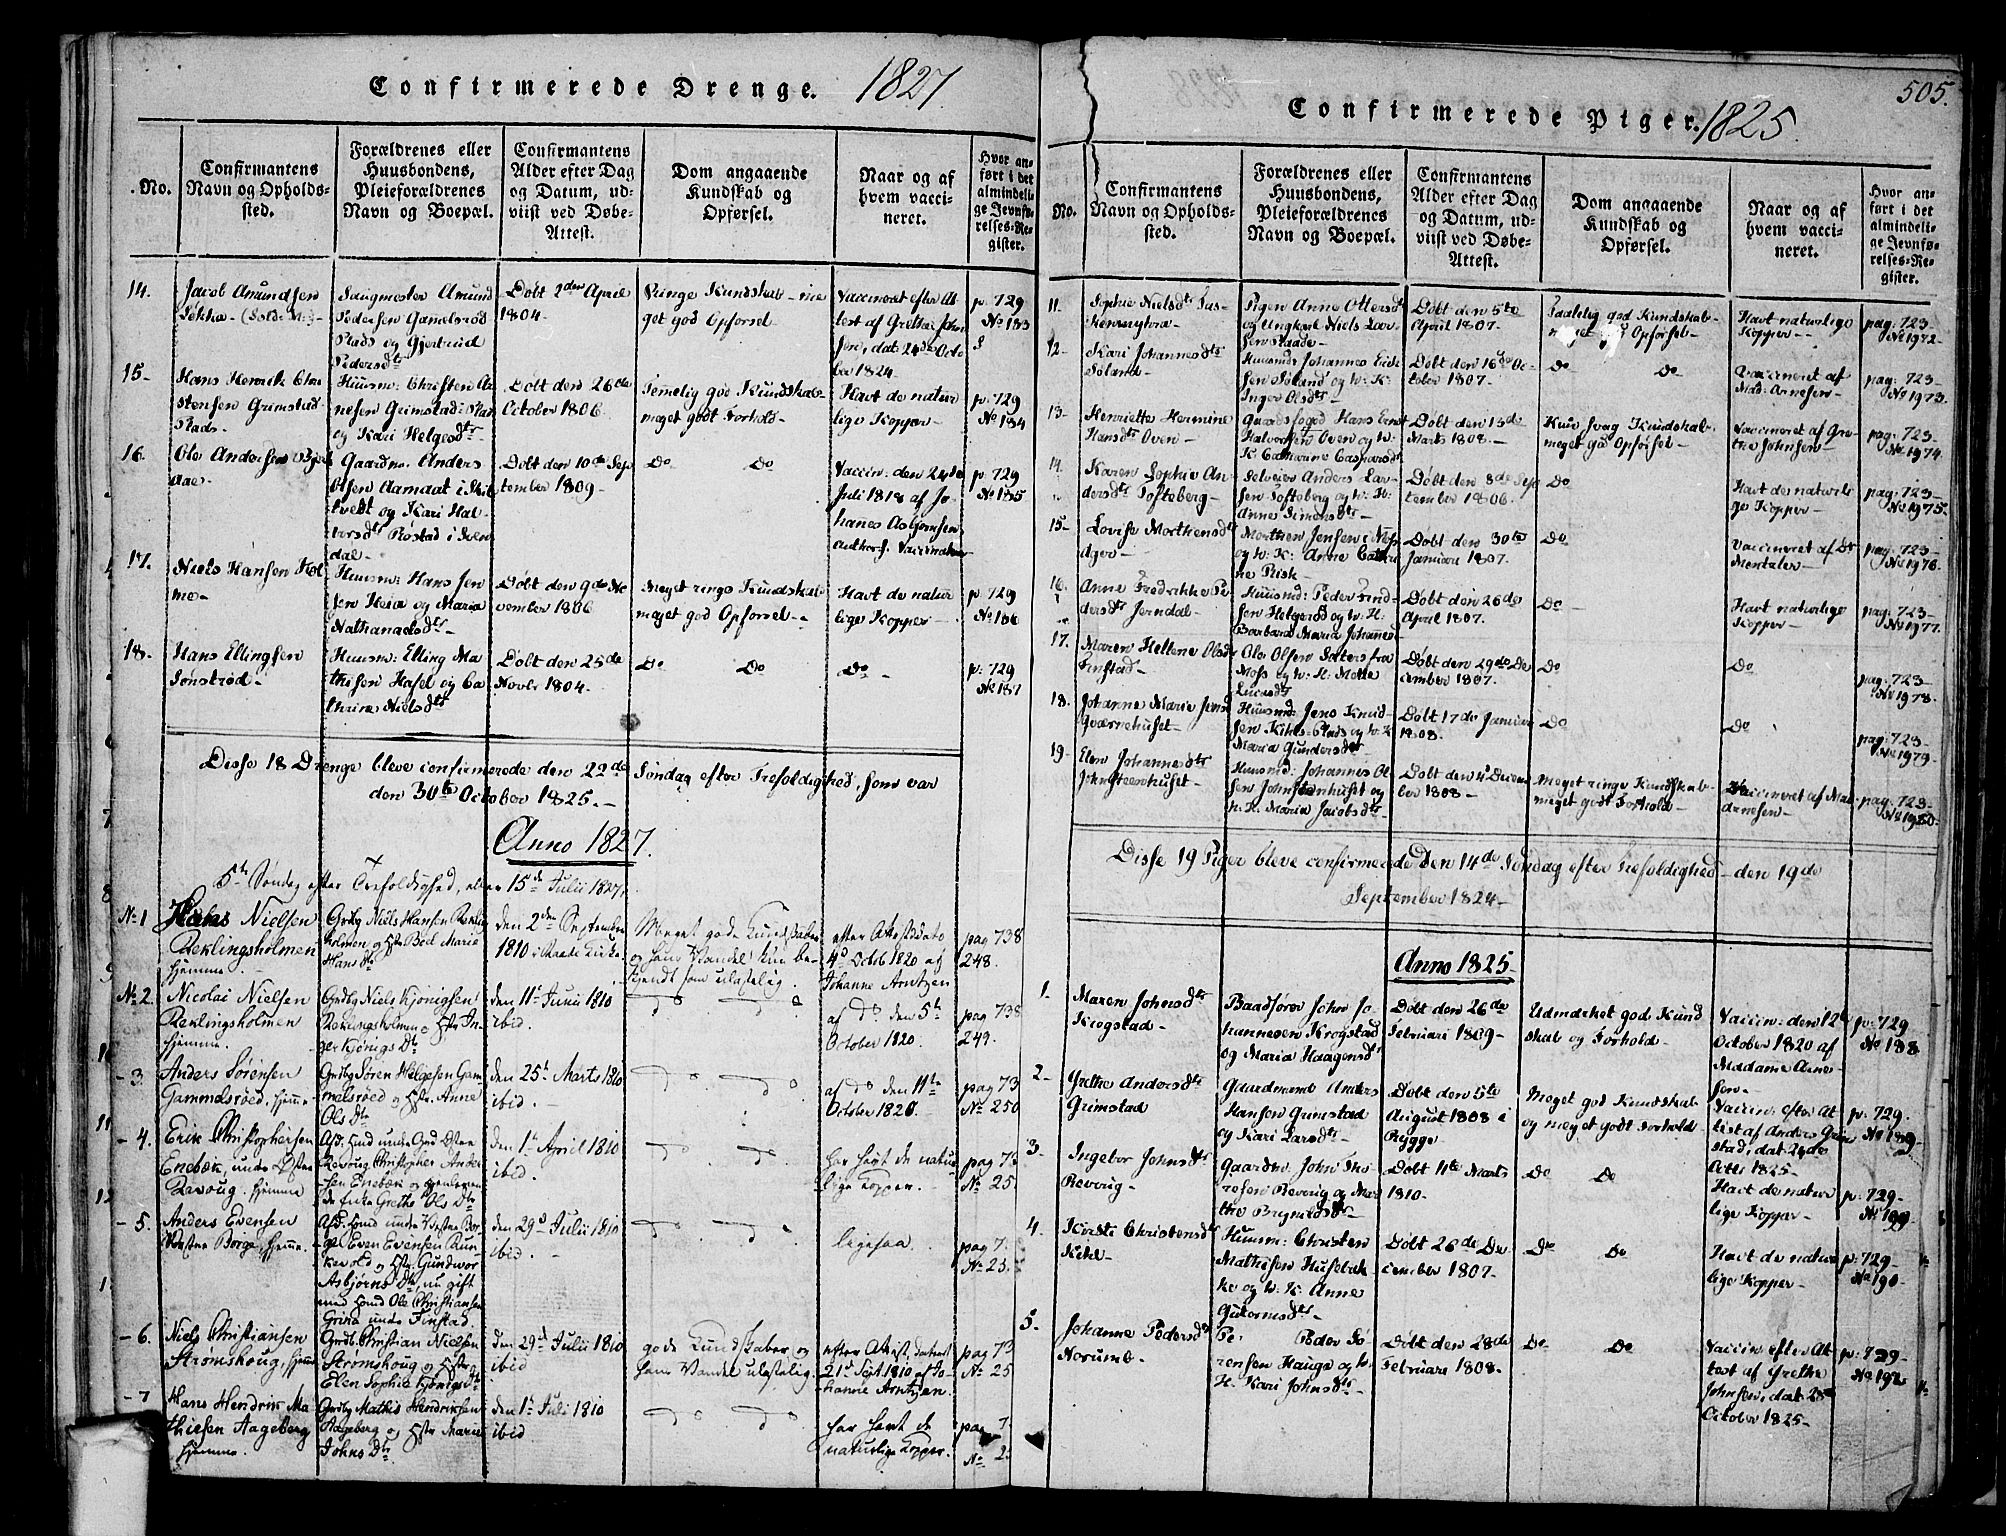 Confirmerede Drenge. 1827.
No.
Confirmantens
Navn og Opholds-
sted.
Forældrenes eller
Huusbondens,
Pleieforældrenes
Navn og Boepæl.
Confirmantens
Alder efter Dag
og Datum, ud-
viist ved Døbe-
Attest.
Dom angaaende
Kundskab og
Opførsel.
Naar og af
hvem vacci-
neret.
Hvor an-
ført i det
almindeli-
ge Jevnfø-
relses-Re-
gister.
14.
Jacob Amundsen
Saugmester Amund
Pedersen Gamelsrød
Plads og Gjertrud
Pedersdtr
Døbt 2den April
1804.
Ringe Kundskab - me
get god Opførsel -
Vaccineret efter At
test af Grethe John
sen, dat: 24de Octo
ber 1824 -
p. 729
No 183
15 -
Hans Henrik Chri
stensen Grimstad
Plads -
Huusm: Christen Ar
nesen Grimstad: Plads
og Kari Helgesdtr -
Døbt den 26de
October 1806 -
Temelig god Kundskab -
meget godt Forhold -
Havt de natur
lige Kopper -
p. 729
No 184
16.
Ole Andersen
Gaardm: Anders
Olsen Aamaat i
og Kari Hal-
vorsdtr Røstad i
dal -
Døbt den 10de Sep
tember 1809 -
Do Do
Vaccin: den 24de
Juli 1818 af Jo-
hannes Asbjørnsen
authors. Vaccinateur
p. 729
No 185
17.
Niels Hansen Hol
me -
Huusm: Hans Jen
sen Heia og Maria
Nathanaelsdtr -
Døbt den 9de No
vember 1806
Meget ringe Kundskab
meget god Opførsel -
Havt de natur
lige Kopper -
p. 729
No 186
18.
Hans Ellingsen
Sønstrød -
Huusm: Elling Ma
thisen Hasel og Ca
thrine Nielsdtr
Døbt den 25de
Novbr 1804 -
Do Do
Do -
p: 729
No 187
Disse 18 Drenge bleve confirmerede den 22de Søndag efter Trefoldighed, som var
den 30te October 1825. -
Anno 1827.
5te Søndag efter Trefoldighed, eller 15de Julii 1827.
No 1
Hans Nielsen
Reklingsholmen
hjemme. -
Grdby Niels Hansen Rekling
holmen og Hstr Birt Marie
Hans dtr
den 2den September
1810 i Raade Kirke.
Meget gode Kundskaber
og hans Vandel kun be-
kjendt som ulastelig.
efter Attest dato
4de Octob 1820 af
Johanne Arntzen
pag 738
248.
No 2.
Nicolai Nielsen
Reklingsholmen
hjemme.
Grdby Niels Kjønigsen
Reklingsholmen og Hstr In-
ger Kjønigs Dtr
den 11te Junii 1810
ibid.
Do Do
af Do den 5te
October 1820.
pag 738
249.
- 3.
Anders Sørensen
Gammelsrøed, hjemme
Grdby Søren Helgesen Gam-
melsrøed og Hstr Anne
Ols Dtr
den 25de Marts 1810
ibid. -
Do Do
af Do den 11te
October 1820.
pag 73
No 250
- 4.
Erik Christophersen
Enebæk, unde Østen
Revoug, hjemme
Afd. Hmd unde Grd Østen
Revoug Christopher Ander
sen Enebæk og
de Enke Grethe Ols Dtr
den 1te April 1810
ibid.
Do Do
har havt de natur
lige Kopper. -
pag 73
No 25.
- 5.
Anders Evensen
Vestre Borge, hjemme.
Afd. Hmd unde Vestre Bor-
ge Even Evensen Run-
kevold og Hstr Gundvor
Asbjørns Dtr, nu gift
med Hmd Ole Christiansen
Grina unde Finstad.
den 29de Julii 1810
ibid.
Do Do
ligesaa.
pag 7.
No 25.
- 6.
Niels Christiansen
Strømshoug, hjemme
Grdb. Christian Nielsen
Strømshoug og Hstr
Elen Sophie Kjønigs Dtr
den 29de Julii 1810
ibid
gode Kundskaber og
hans Vandel ulastelig.
efter Attest dateret
21de Sept. 1810 af Jo-
hanne Arntzen
pag 73
No 25
- 7
Hans Hendrik Ma
thiesen Aageberg
hjemme.
Grdby Mathis Hendriksen
Aageberg og Hstr Marie
Johns Dtr
den 1te Juli 1810
ibid
Do Do
har havt de
naturlige Kopper.
pag 7
No 2
505.
Confirmerede Piger. 1825.
No.
Confirmantens
Navn og Opholds-
sted.
Forældrenes eller
Huusbondens,
Pleieforældrenes
Navn og Boepæl.
Confirmantens
Alder efter Dag
og Datum, ud-
viist ved Døbe-
Attest.
Dom angaaende
Kundskab og
Opførsel.
Naar og af
hvem vacci-
neret.
Hvor an-
ført i det
almindeli-
ge Jevnfø-
relses-Re-
gister.
11.
Sophie Nielsdtr
Pigen Anne Ottersdtr
og Ungkarl Niels Lar
sen Raade -
Døbt den 5te
April 1807.
Taalelig god Kundskab -
meget god Opførsel -
Havt naturlige
Kopper -
pag: 723 -
No 1972 -
12 -
Kari Johannesdtr
Søland -
Huusmd: Johannes Erik
sen Søland og h: K:
Inger Olsdtr -
Døbt den 16de Oc-
tober 1807.
Do Do
Vaccineret af
Mad: Arnesen -
pag: 723 -
No 1973.
13 -
Henriette Hermine
Hansdtr Oven -
Gaardsfoged Hans Ernst
Halvorsen Oven og h:
K: Catharine Caspersdtr
Døbt den 13de
Marts 1808. -
Kun svag Kundskab -
meget god Opførsel -
Vaccineret af Gre-
the Johnsen -
pag: 723 -
No 1974.
14.
Karen Sophie An-
dersdtr Tofteberg -
Selveier Anders Lar-
sen Tofteberg og h: K:
Anne Simensdtr -
Døbt den 8de Sep
tember 1806 -
Do
Havt de naturli
ge Kopper -
pag: 723 -
No 1975.
15 -
Lovise Morthensdtr
Ager -
Morthen Jensen i Næss
og h: K: Anne Cathri
ne Risk -
Døbt den 30te
Januari 1807.
Do
Vaccineret af Dr
Mentaler -
pag: 723 -
No 1976.
16.
Anne Fredrikke Pe
dersdtr Jerndal -
Huusmd: Peder
sen Helgerød og h: K:
Barbara Maria Johannesd
Døbt den 26de
April 1807.
Do -
Havt naturlige
Kopper -
pag: 723 -
No 1977.
17.
Maren Hellene Olsdtr
Finstad -
Ole Olsen Sæter fra
Moss og h: K: Mette
Lucasdtr
Døbt den 29de De
cember 1807.
Do
Do
pag: 723 -
No 1978.
18.
Johanne Marie Jensd
Qværnehuset -
Huusmd: Jens Knud-
sen Kihls Plads og h: K
Maria Gundersdtr
Døbt 17de Januari
1808.
Do
Do
pag: 723 -
No 1979 -
19 -
Elen Johannesdtr
Johnsteenhuset -
Huusmd: Johannes Ol
sen Johnstenhuset og
h. K. Maria Jacobsdtr
Døbt den 4de Decem
ber 1808 -
Meget ringe Kundskab -
meget godt Forhold -
Vaccineret af Mad
Arnesen -
pag: 723 -
No 1980.
Disse 19 Piger bleve confirmerede den 14de Søndag efter Trefoldighed - den 19de
September 1824 -
Anno 1825 -
1.
Maren Johnsdtr
Krogstad -
Baadfører John Jo-
hannesen Krogstad
og Maria Haagensdtr
Døbt den 26de
Februari 1809 -
Udmærket god Kund
skab og Forhold -
Vaccin: den 12te
October 1820 af
Madame Arne-
sen -
p: 729
No 188
2 -
Grethe Andersdtr
Grimstad
Gaardmand Anders
Hansen Grimstad
og Kari Larsdtr -
Døbt den 5te
August 1808 i
Rygge -
Meget god Kundskab
og meget godt Forhold
Vaccin: efter At
test af Anders Grim
stad, dat 24de
Octbr 1825 -
p: 729.
No 189
3 -
Ingebor Johnsdtr
Revoug -
Gaardm: John Tho
resen Revoug og Mar
the Brynildsdtr -
Døbt 11te Marts
1810.
Do Do
Havt de natur
lige Kopper -
p: 729 -
No 190
4.
Kirsti Christensdtr
Kihl -
Huusm: Christen
Mathisen Husebæk
ke og h: K: Anne
Guttormsdtr -
Døbt 26de De
cember 1807 -
Do Do
Havt de natur
lige Kopper -
p: 729 -
No 190 -
5 -
Johanne Pedersdtr
Norum -
Pe: Peder Sø
rensen Hauge og h
K. Kari Johnsdtr -
Døbt den 28de
Februari 1808 -
Do Do
Vaccin efter At
test af Grethe
Johnsen, dat 25de
October 1825 -
p: 729 -
No 192